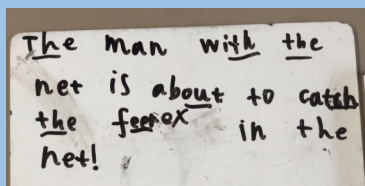 The man with the
net is about to catch
the feerex in the
net!